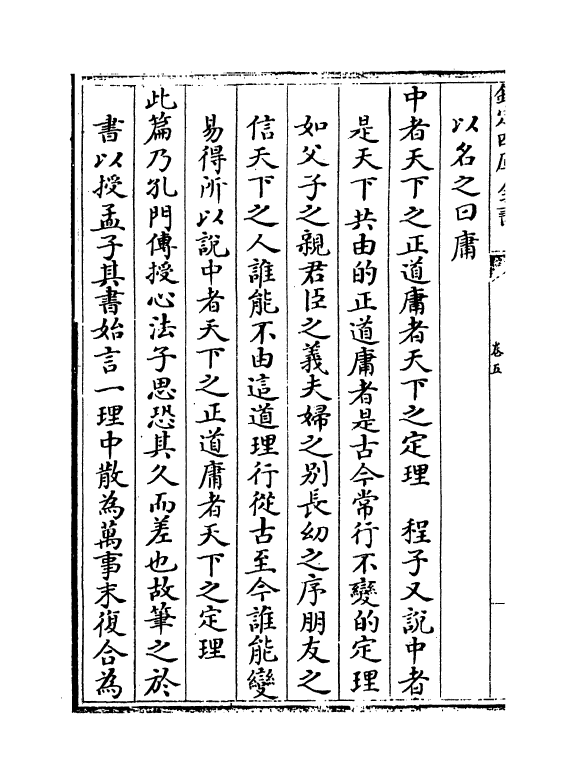 以名之曰庸
中者天下之正道庸者天下之定理　程子又說中者
是天下共由的正道庸者是古今常行不變的定理
如父子之親君臣之義夫婦之别長幼之序朋友之
信天下之人誰能不由這道理行從古至今誰能變
易得所以說中者天下之正道庸者天下之定理
此篇乃孔門傳授心法子思恐其久而差也故筆之於
書以授孟子其書始言一理中散為萬事末復合為
卷五